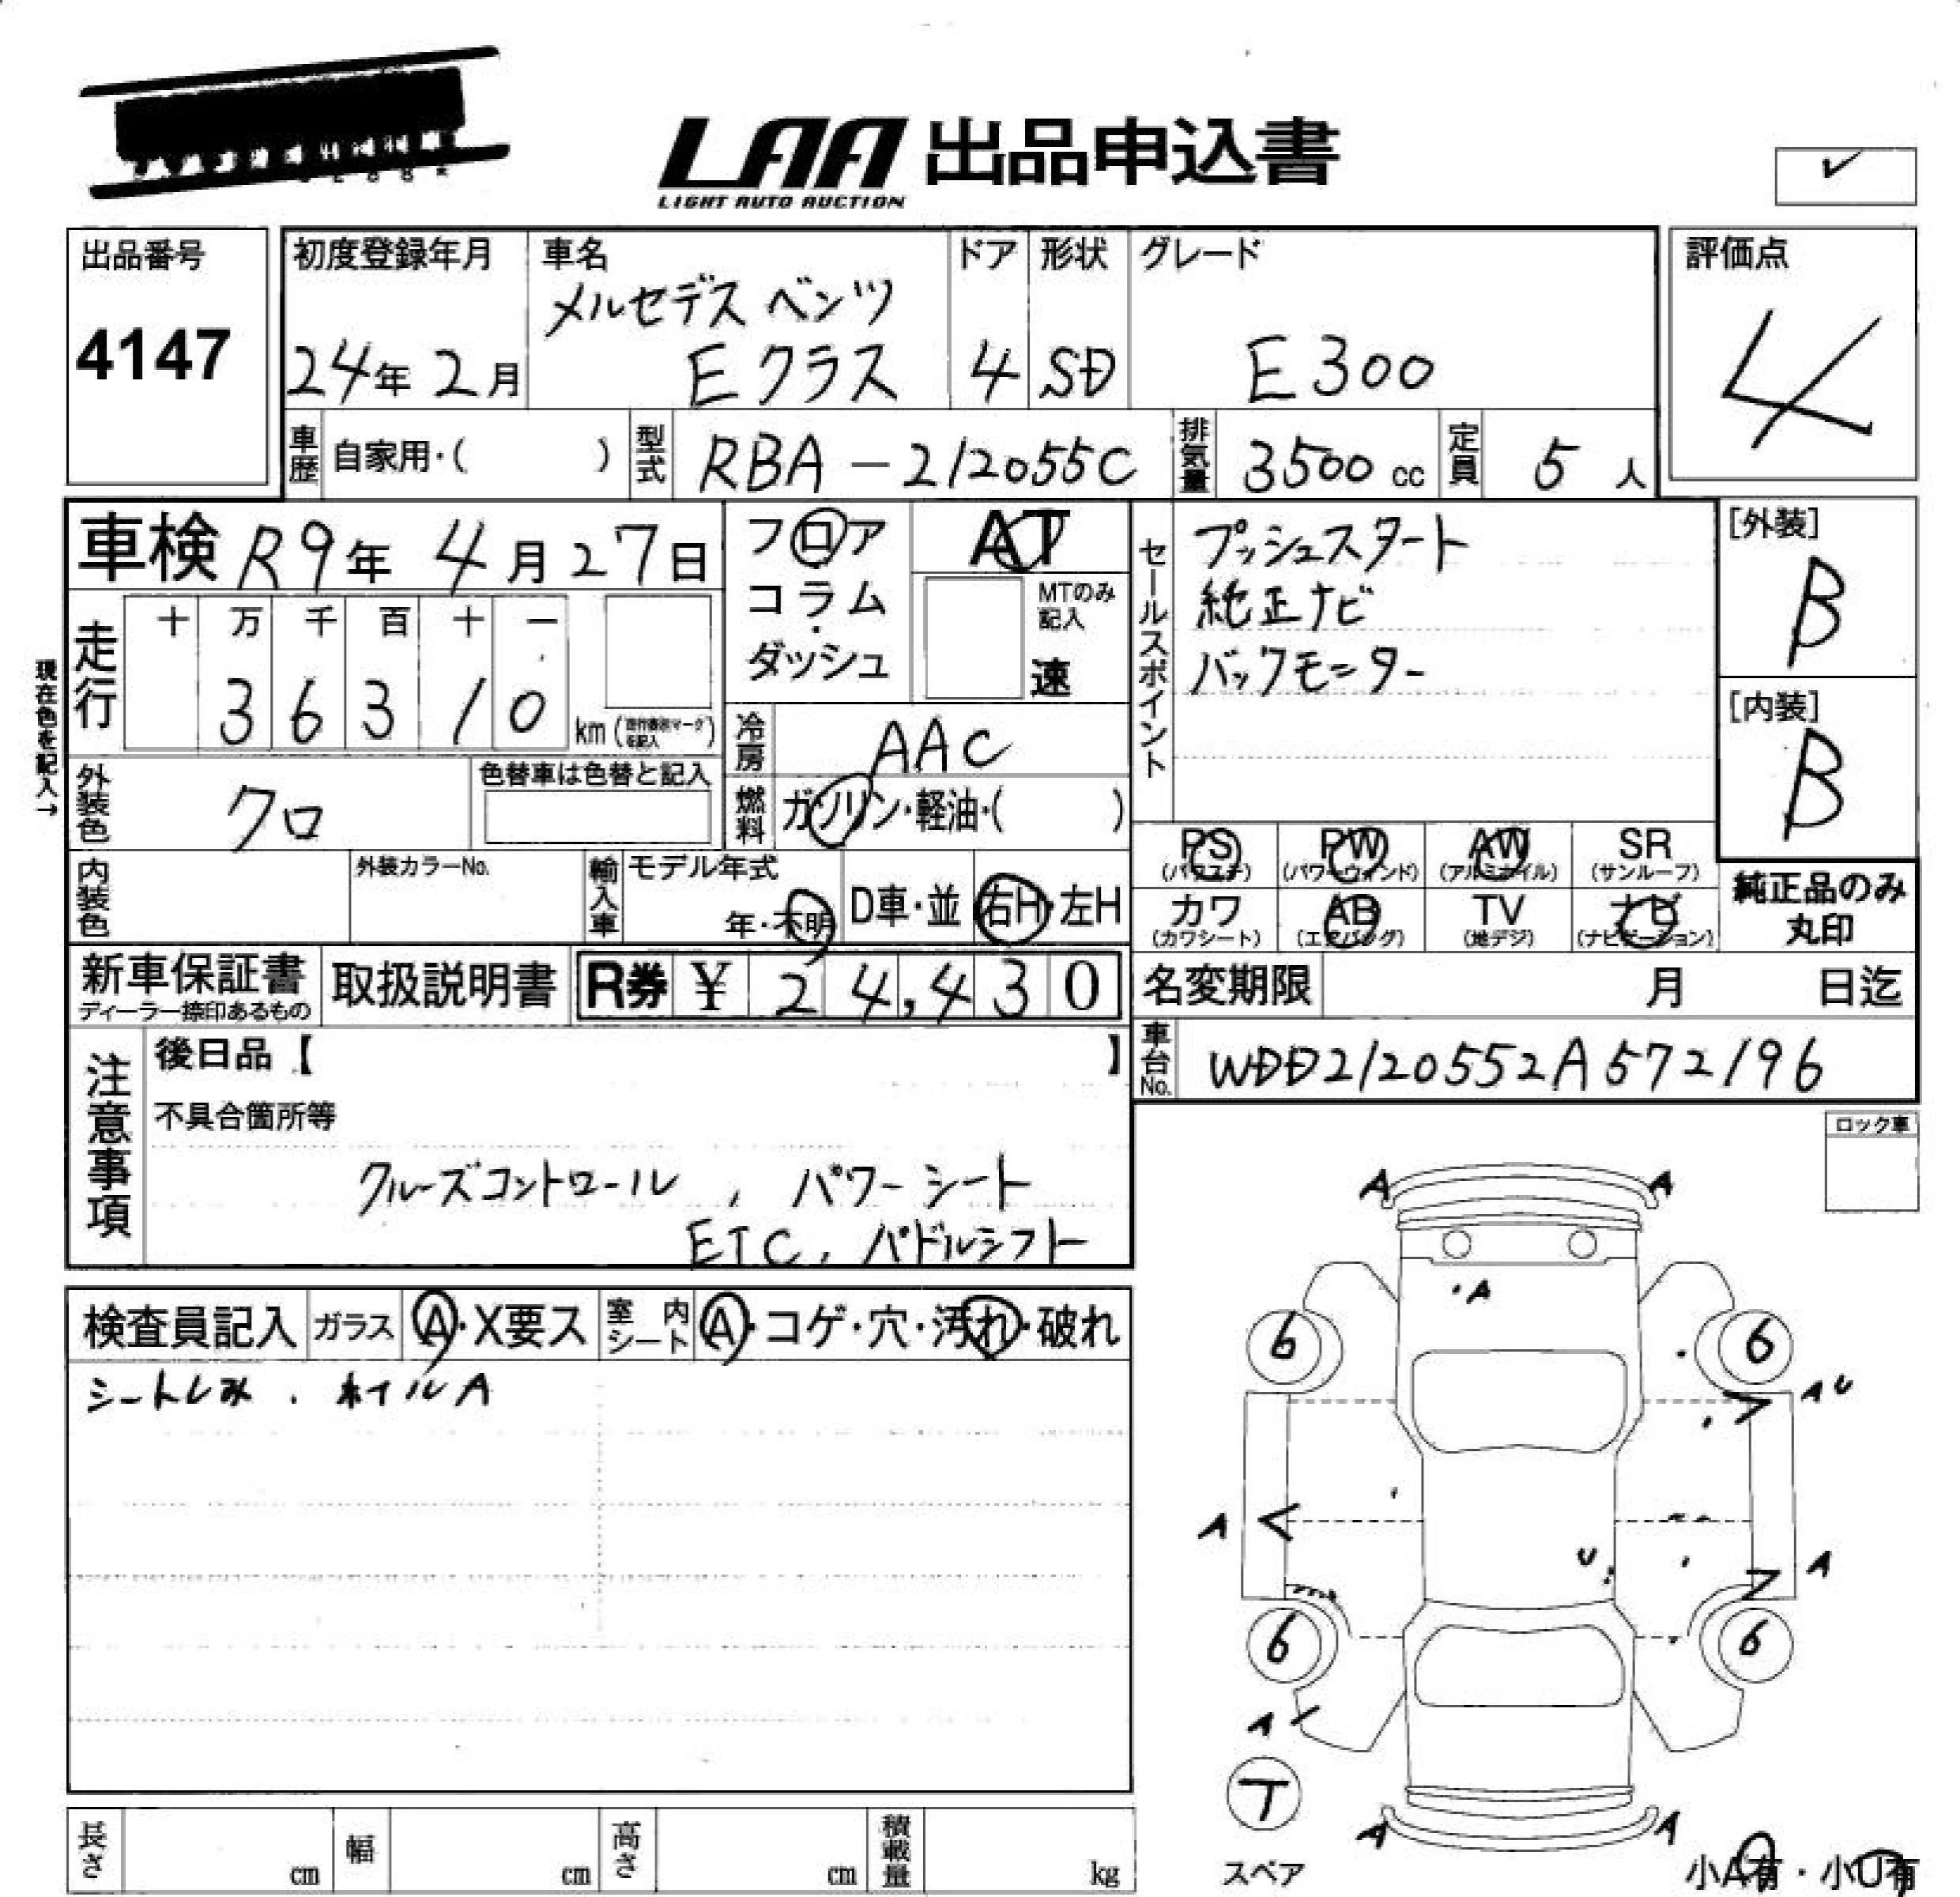 LAA 出品申込書
LIGHT AUTO AUCTION
出品番号
4147
初度登録年月
24年 2月
車名
メルセデス ベンツ
Eクラス
ドア
4
形状
SD
グレード
E300
評価点
4
車歴 自家用・( )
型式 RBA-212055C
排気量 3500 cc
定員 5 人
車検 R9年 4月 27日
フロア
コラム・
ダッシュ
AT
MTのみ
記入
速
セールスポイント
プッシュスタート
純正ナビ
バックモニター
[外装]
B
[内装]
B
現在色を記入→
走行
十 万 千 百 十 一
3 6 3 1 0
km
冷房 AAC
外装色 クロ
色替車は色替と記入
燃料 ガソリン・軽油・( )
内装色
外装カラーNo.
輸入車
モデル年式
年・不明
D車・並
右H・左H
PS PW AW SR
(パワステ) (パワーウィンド) (アルミホイル) (サンルーフ)
カワ AB TV ナビ
(カワシート) (エアバッグ) (地デジ) (ナビゲーション)
純正品のみ
丸印
新車保証書
ディーラー捺印あるもの
取扱説明書
R券 ¥ 24,430
名変期限 月 日迄
車台No. WDD2120552A572196
注意事項
後日品【 】
不具合箇所等
クルーズコントロール , パワーシート
ETC, パドルシフト
ロック車
検査員記入 ガラス A・X要ス 室内シート A・コゲ・穴・汚れ・破れ
シートしみ . ホイルA
A A
A
6 6
A U
A
U
A
6 6
A
T
A A
スペア
小A有・小U有
長さ cm 幅 cm 高さ cm 積載量 kg